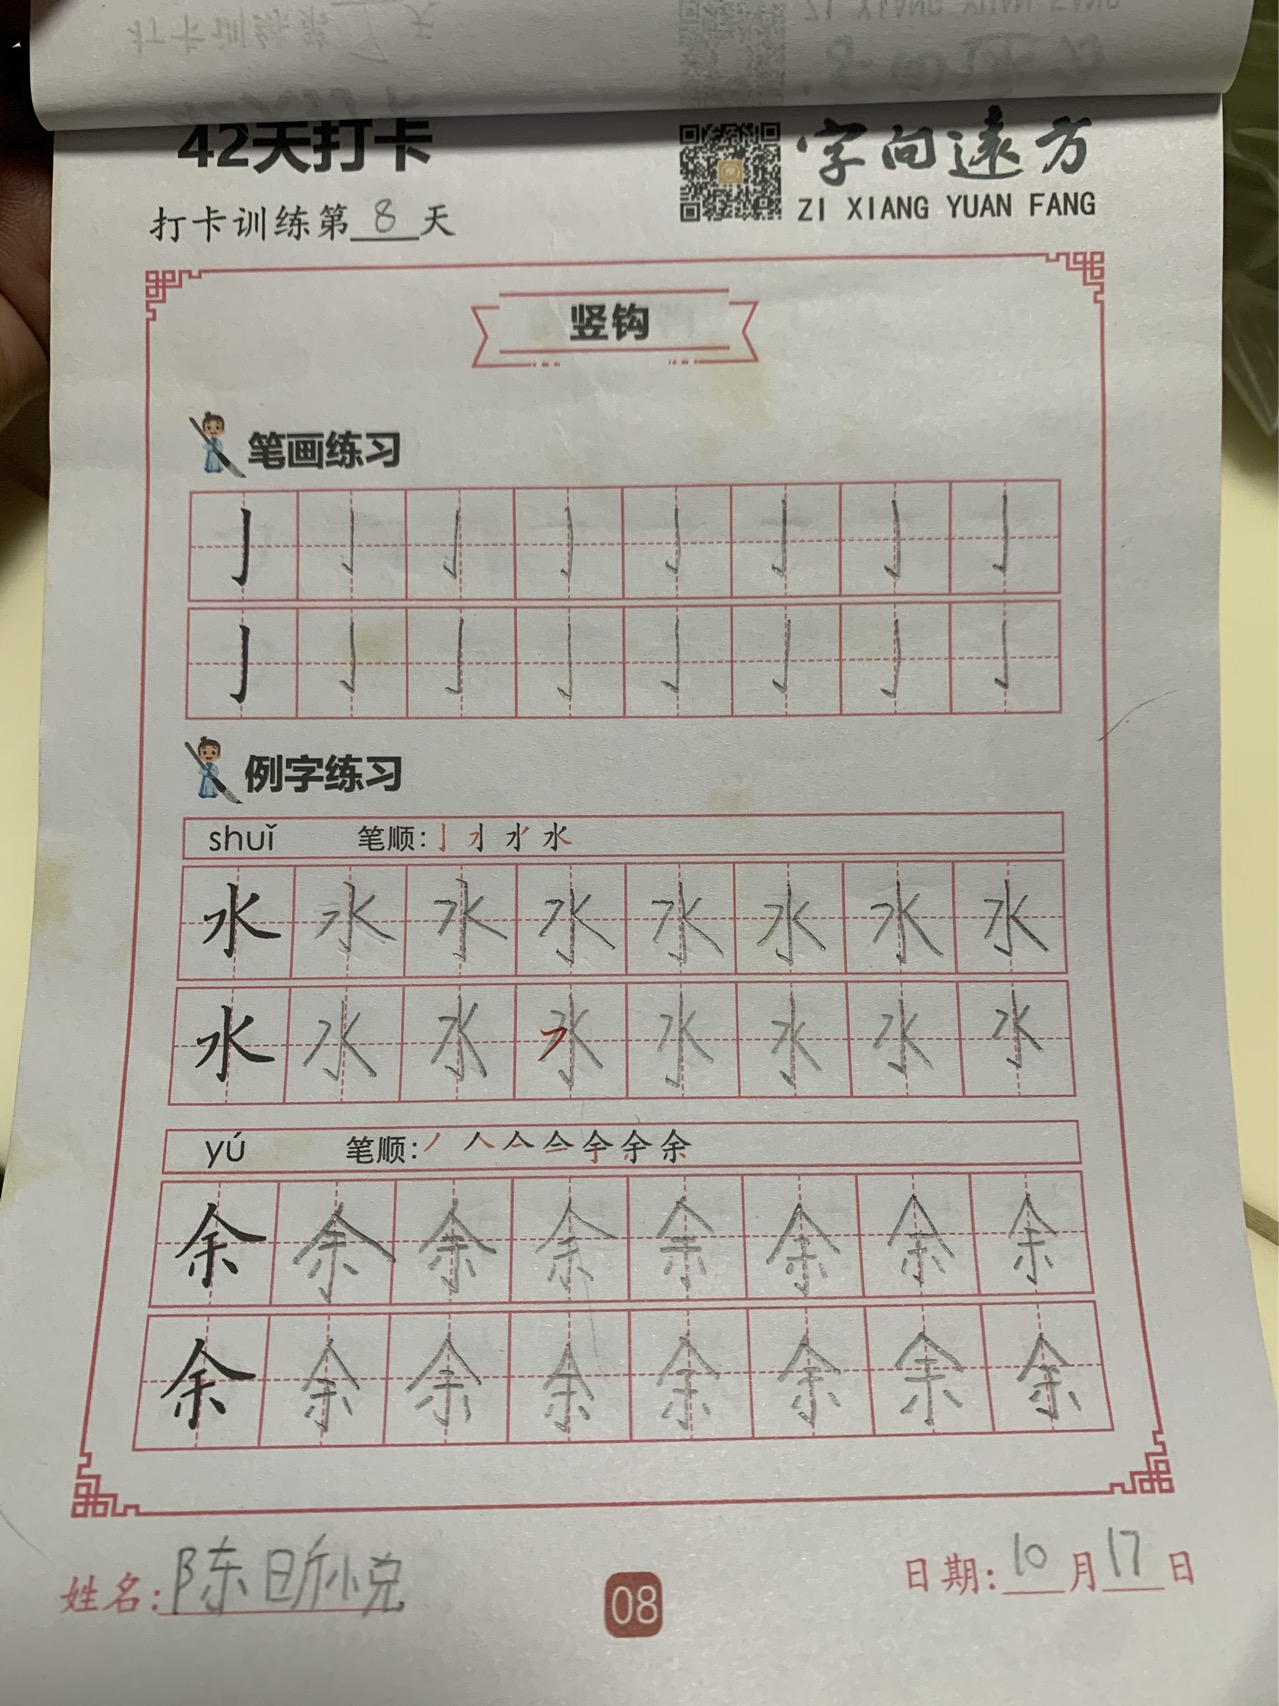 42天打卡
字向遠方
ZI XIANG YUAN FANG
打卡训练第8天
竖钩
笔画练习
亅亅亅亅亅亅亅亅
亅亅亅亅亅亅亅亅
例字练习
shuǐ 笔顺:
水水水水水水水水
水水水水水水水水
yú 笔顺:
余余余余余余余余
余余余余余余余余
姓名:陈昕悦
08
日期:10月17日